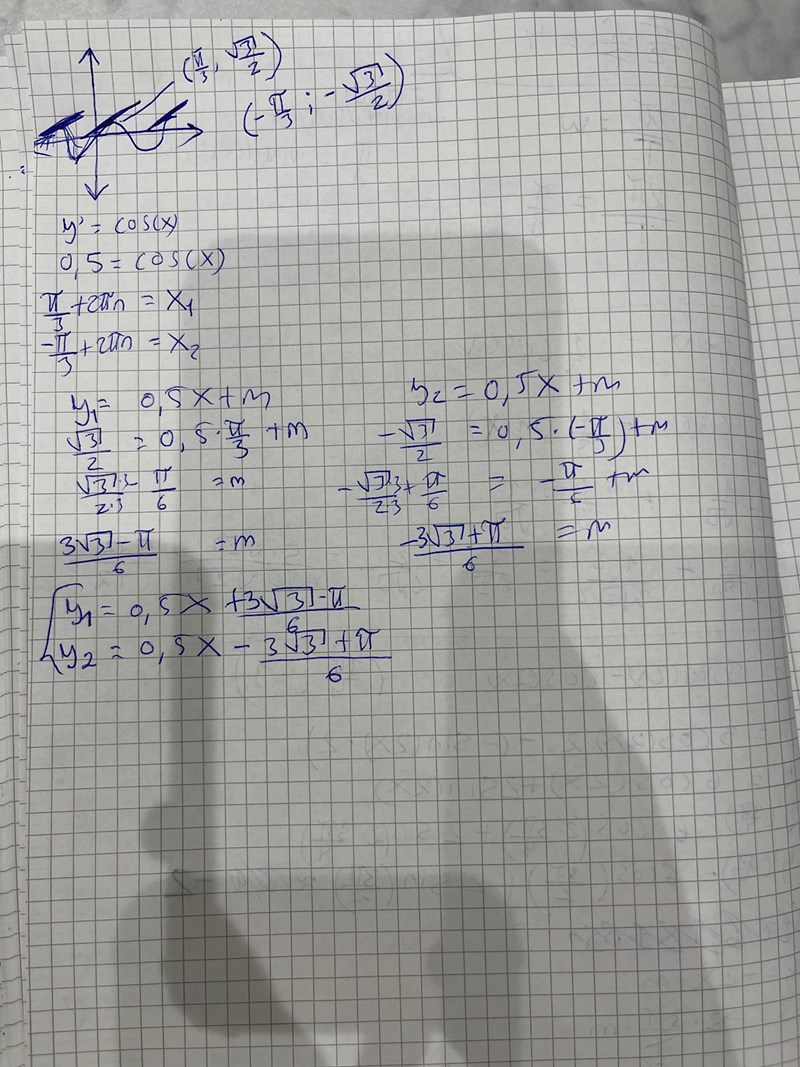 (π/3, √3/2)
(-π/3 ; -√3/2)
y' = cos(x)
0,5 = cos(x)
π/3 + 2πn = x₁
-π/3 + 2πn = x₂
y₁ = 0,5x + m
√3/2 = 0,5 · π/3 + m
√3·3/2·3 - π/6 = m
3√3 - π/6 = m
y₂ = 0,5x + m
-√3/2 = 0,5 · (-π/3) + m
-√3·3/2·3 + π/6 = -π/6 + m
-3√3 + π/6 = m
y₁ = 0,5x + 3√3 - π/6
y₂ = 0,5x - 3√3 + π/6